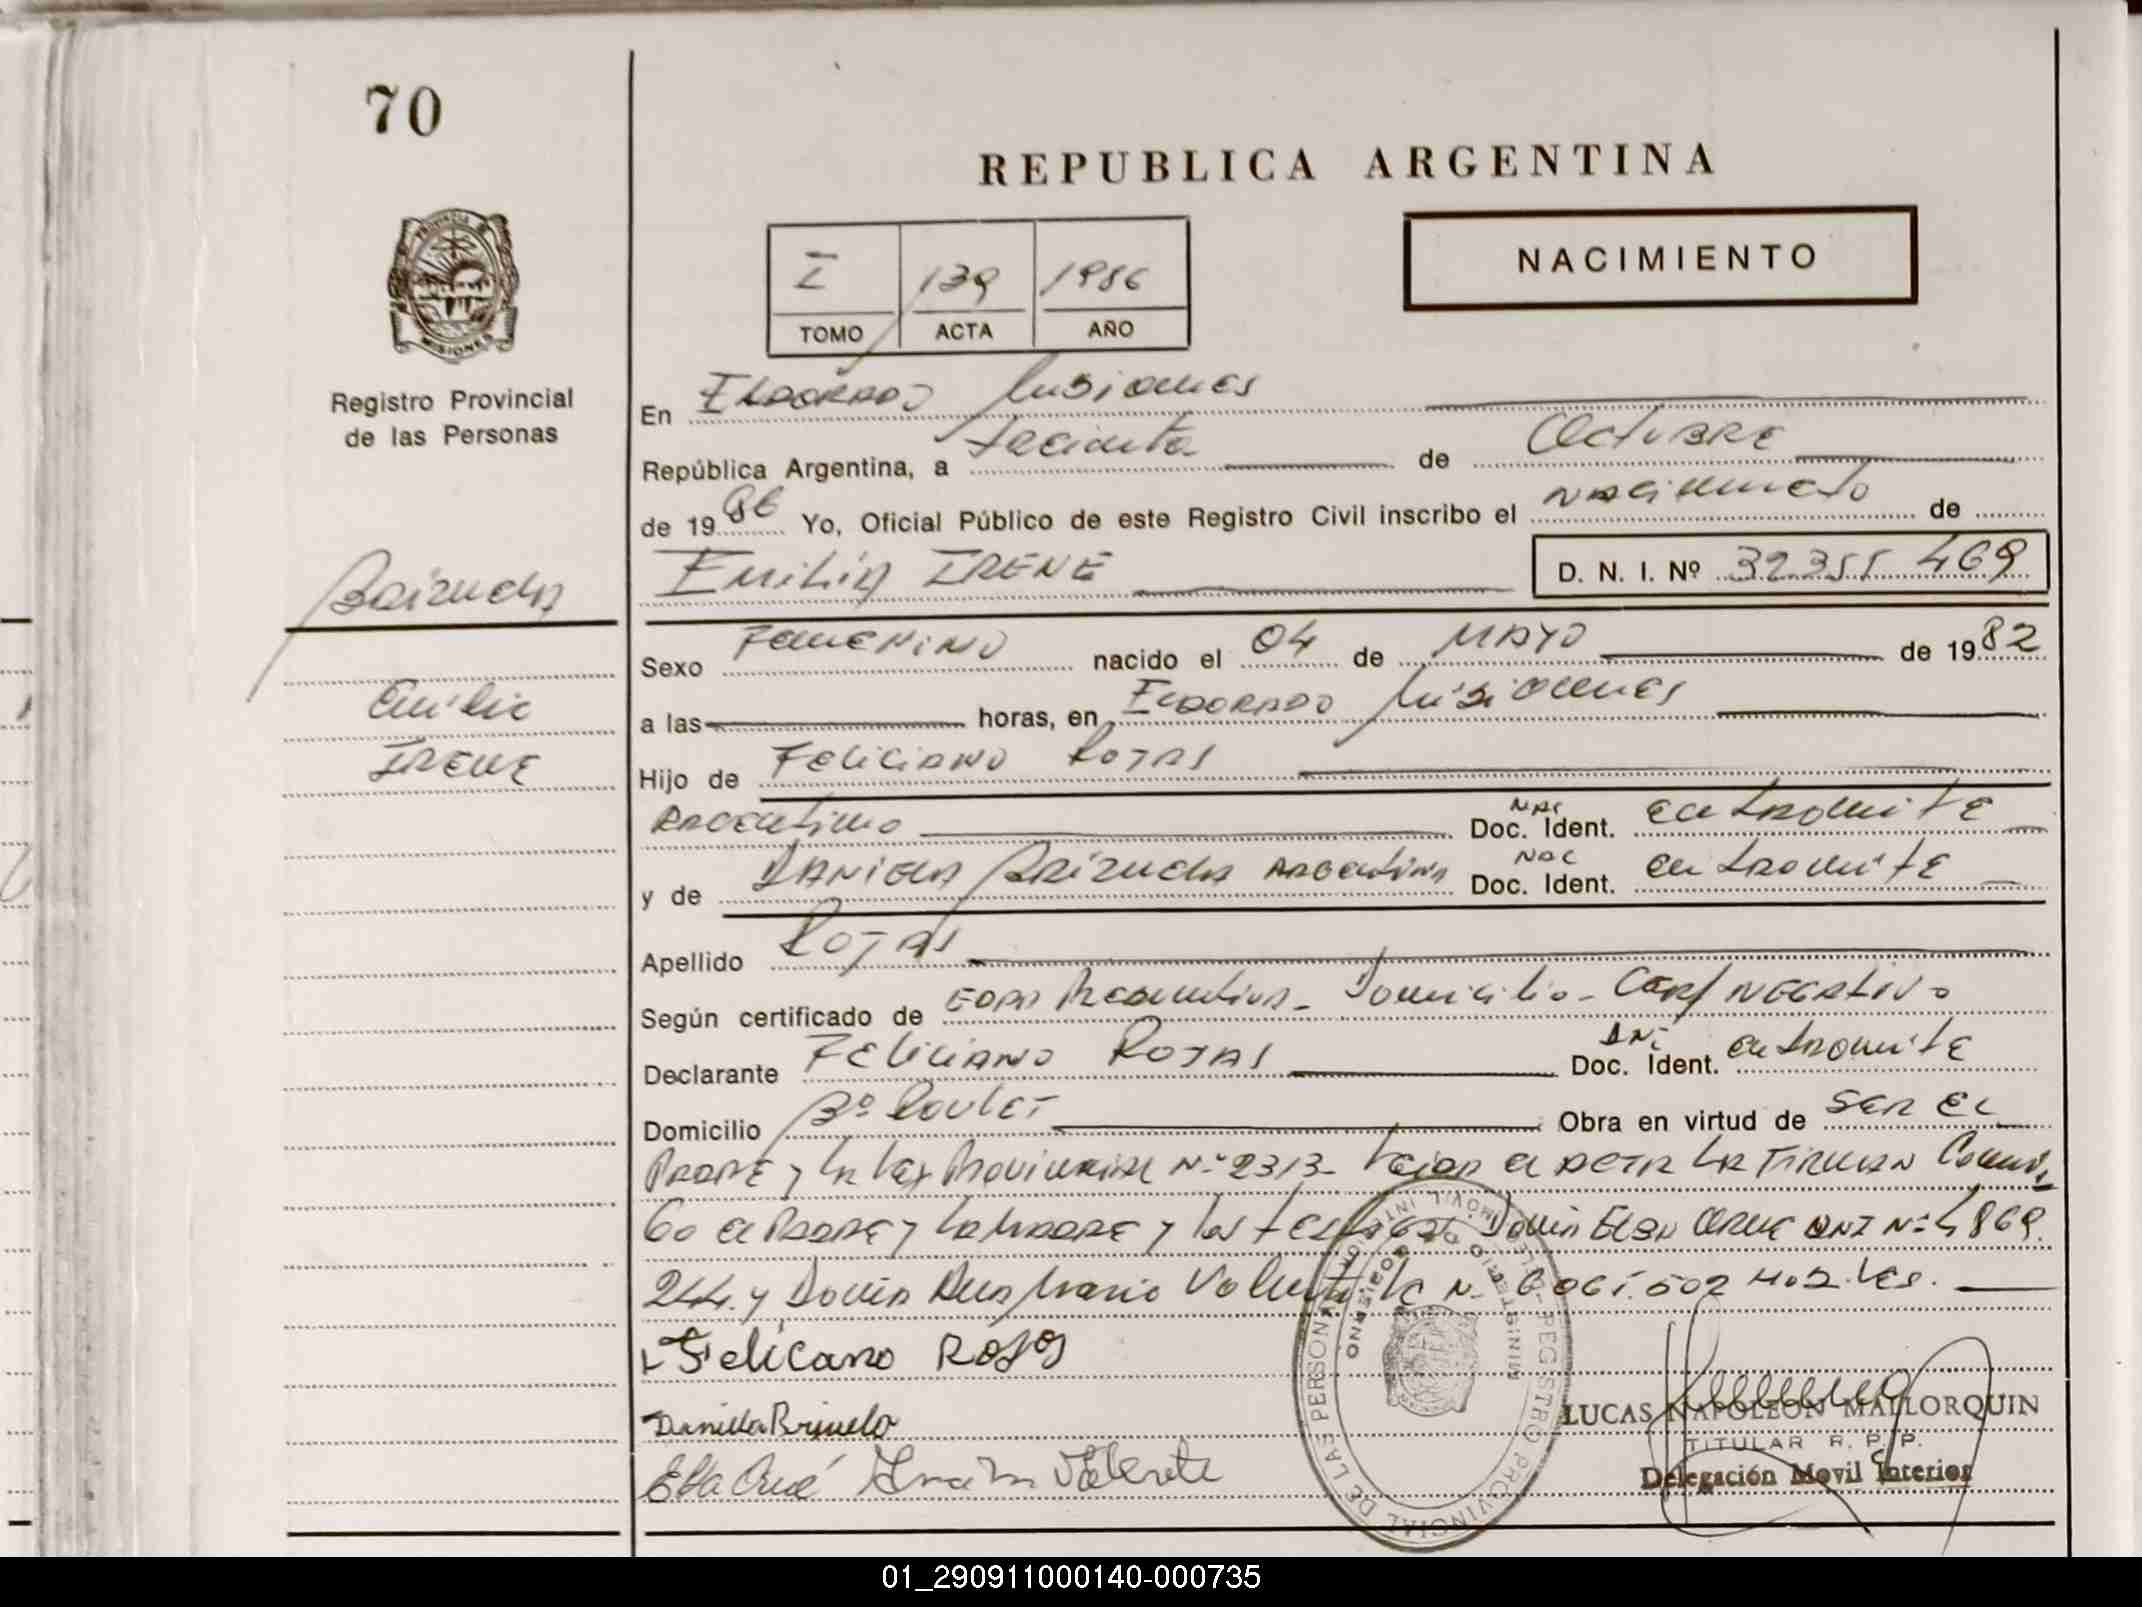 70
REPUBLICA ARGENTINA
PROVINCIA DE
MISIONES
I 139 1986
TOMO ACTA AÑO
NACIMIENTO
Registro Provincial
de las Personas
En ELDORADO Misiones
República Argentina, a treinta de Octubre
de 1986 Yo, Oficial Público de este Registro Civil inscribo el nacimiento de
Emilia IRENE D. N. I. Nº 32355 469
Brizuela
Emilia
Irene
Sexo Femenino nacido el 04 de MAYO de 1982
a las horas, en ELDORADO Misiones
Hijo de FELICIANO ROJAS
Argentino Doc. Nac Ident. en tramite
y de DANIELA Brizuela Argentina Doc. Nac Ident. en tramite
Apellido ROJAS
Según certificado de EDAD Presuntiva - Domicilio - Cert/ NEGATIVO
Declarante FELICIANO ROJAS Doc. DNI Ident. en tramite
Domicilio Bº Obra en virtud de SER EL
PADRE y la Ley Provincial Nº 2313 - el acta la firman Conmi
go el PADRE y la MADRE y los testigos: Doña Elba DNI Nº 4869.
244. y Doña Ana Maria Valenti LC Nº 6061.602
Felicano ROJAS
Daniela Brisuela
Elba Ana M
REGISTRO PROVINCIAL DE LAS PERSONAS
MINISTERIO DE GOBIERNO
LUCAS NAPOLEON MALLORQUIN
TITULAR R. P. P.
Delegación Movil Interior
01_290911000140-000735